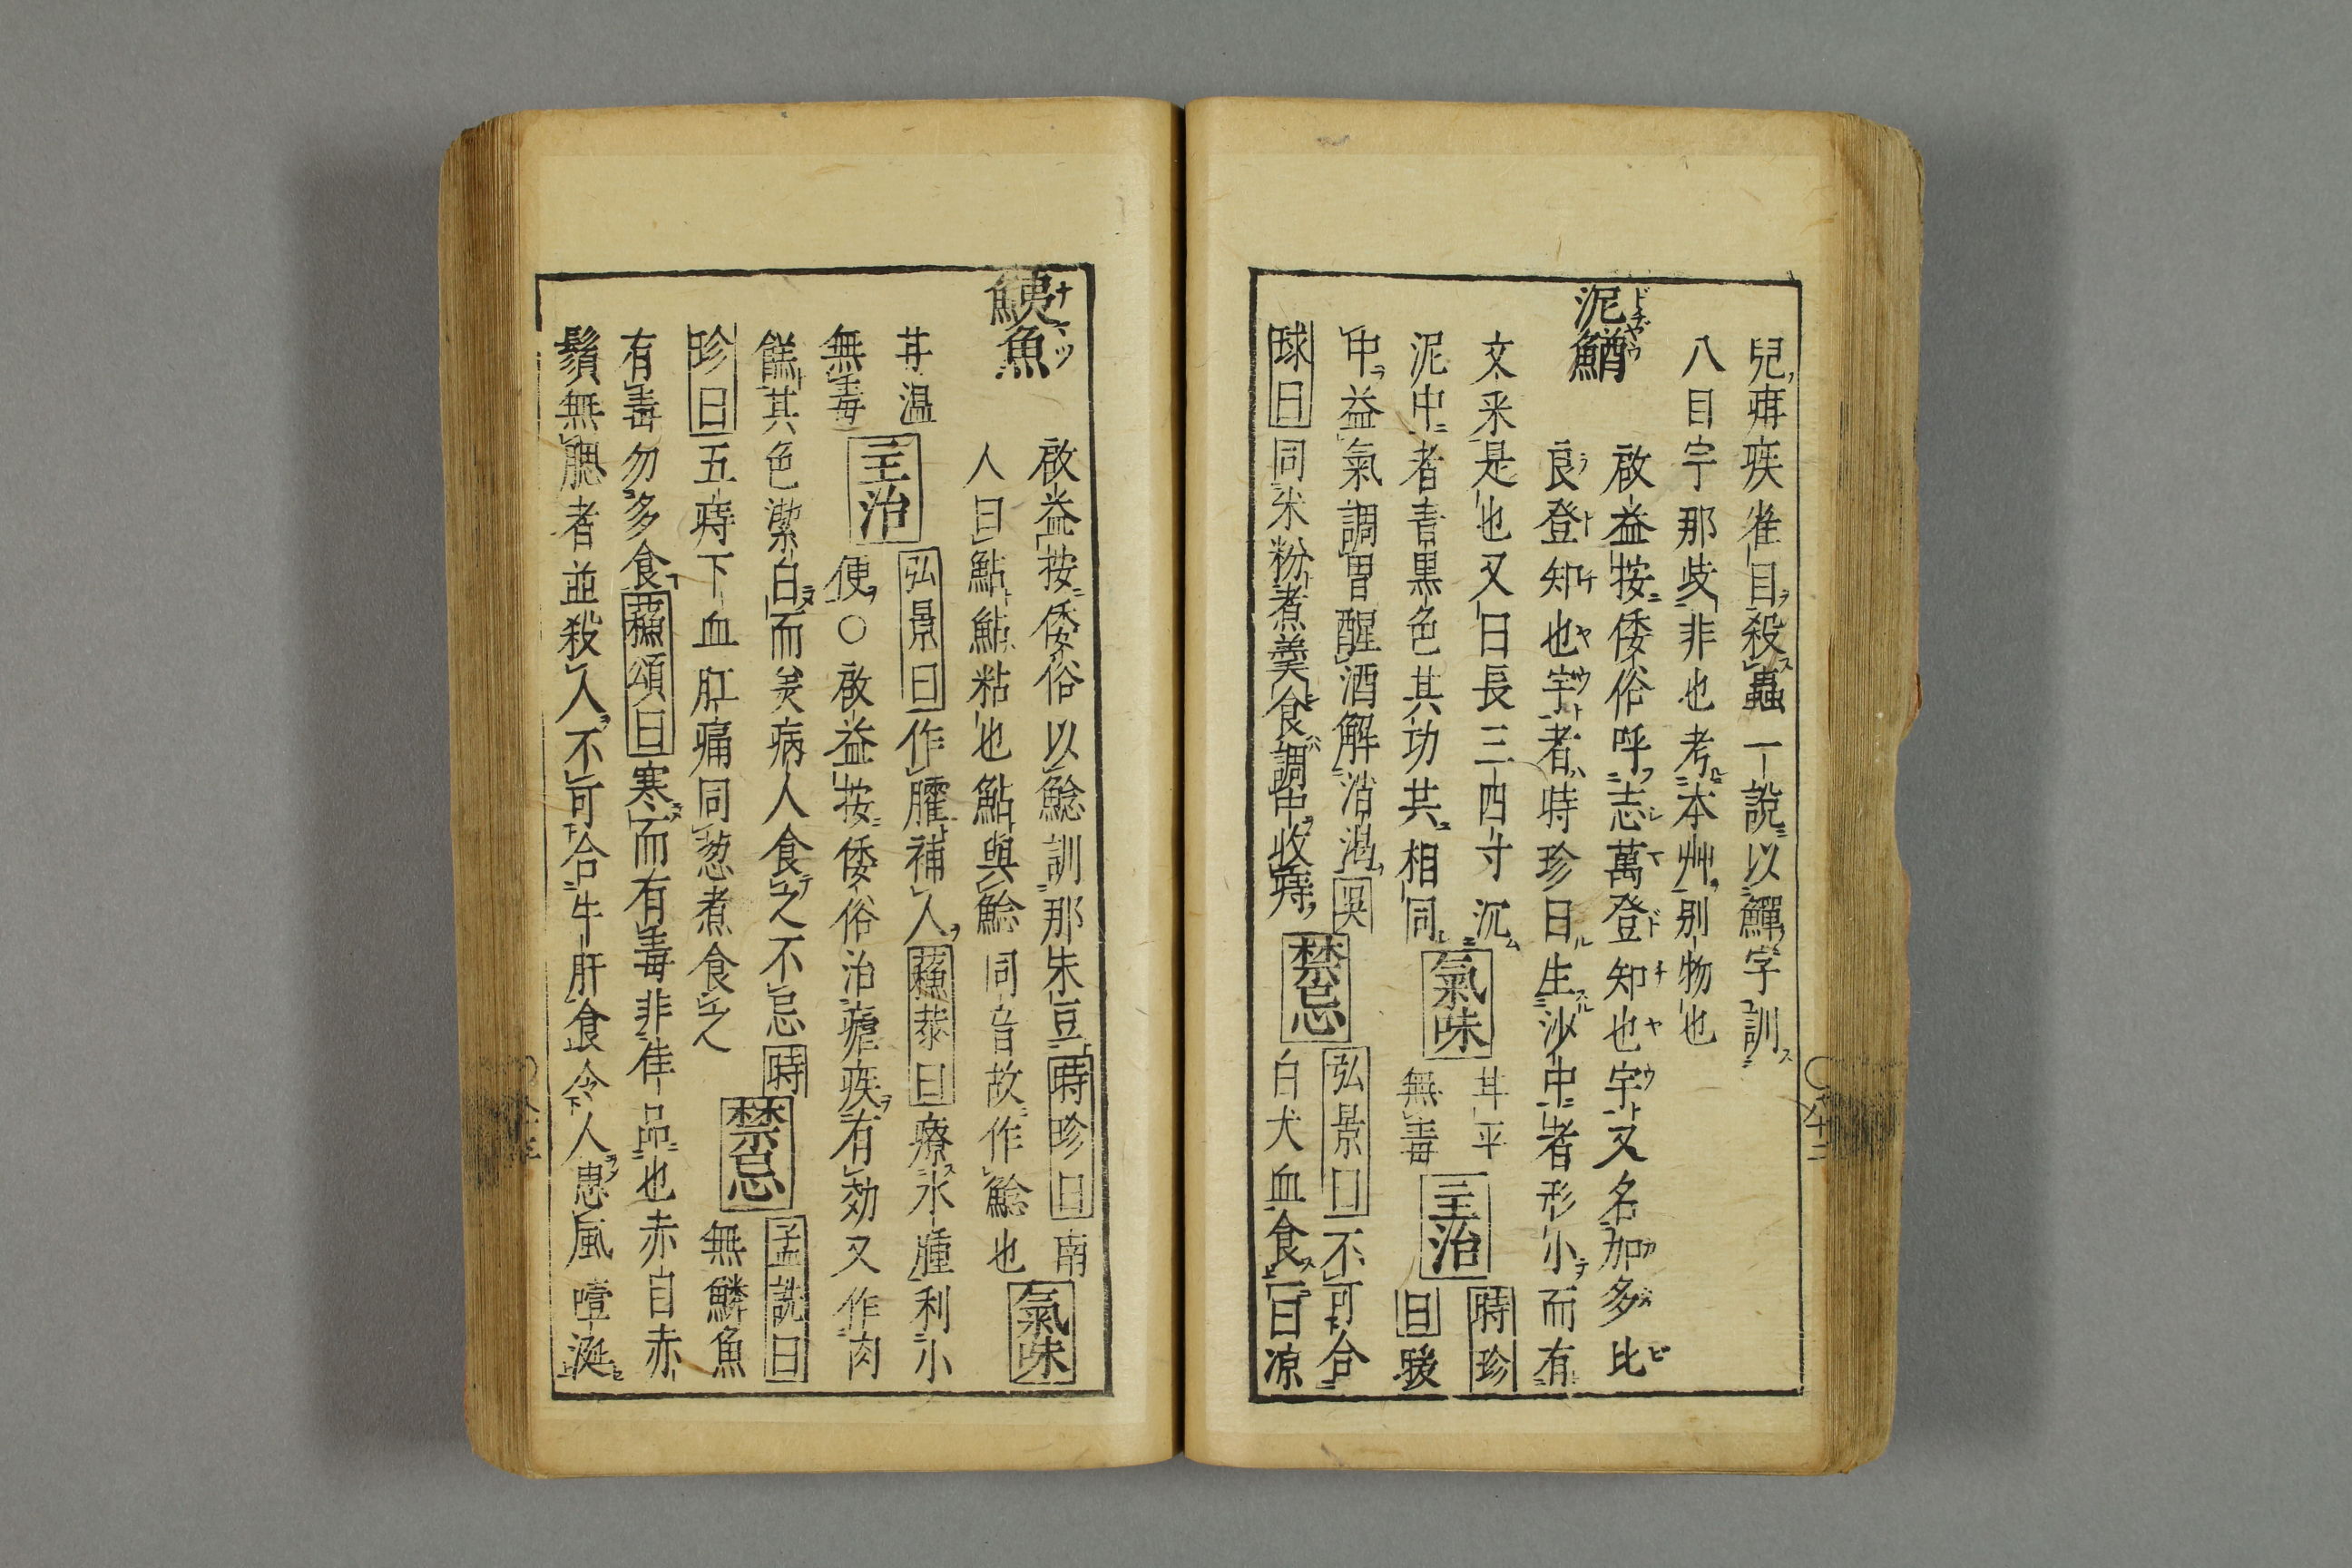 兒疳疾雀目殺蟲一說以鱓字訓
八目宇那歧非也考本艸別物也
泥鰌
ドヂヤウ
啟益按倭俗呼志萬登知也宇又名加多比
良登知也宇者時珍曰生沙中者形小而有
文采是也又曰長三四寸沉
泥中者青黒色其功共相同
氣味
甘平
無毒
主治
時珍
曰暖
中益氣調胃醒酒解消渴
吳
球曰
同米粉煮羹食調中收痔
禁忌
弘景曰
不可合
白犬血食
一曰凉
鮧魚
ナマヅ
啟益按倭俗以鯰訓那朱豆
時珍曰
南
人曰鮎鮎粘也鮎與鯰同音故作鯰也
氣味
甘温
無毒
主治
弘景曰
作臛補人
蘇恭曰
療水腫利小
便○啟益按倭俗治瘧疾有効又作肉
餻其色潔白而美病人食之不忌
時
珍曰
五痔下血肛痛同葱煮食之
禁忌
孟詵曰
無鱗魚
有毒勿多食
蘇頌曰
寒而有毒非佳品也赤目赤
鬚無腮者並殺人不可合牛肝食令人患風噎涎